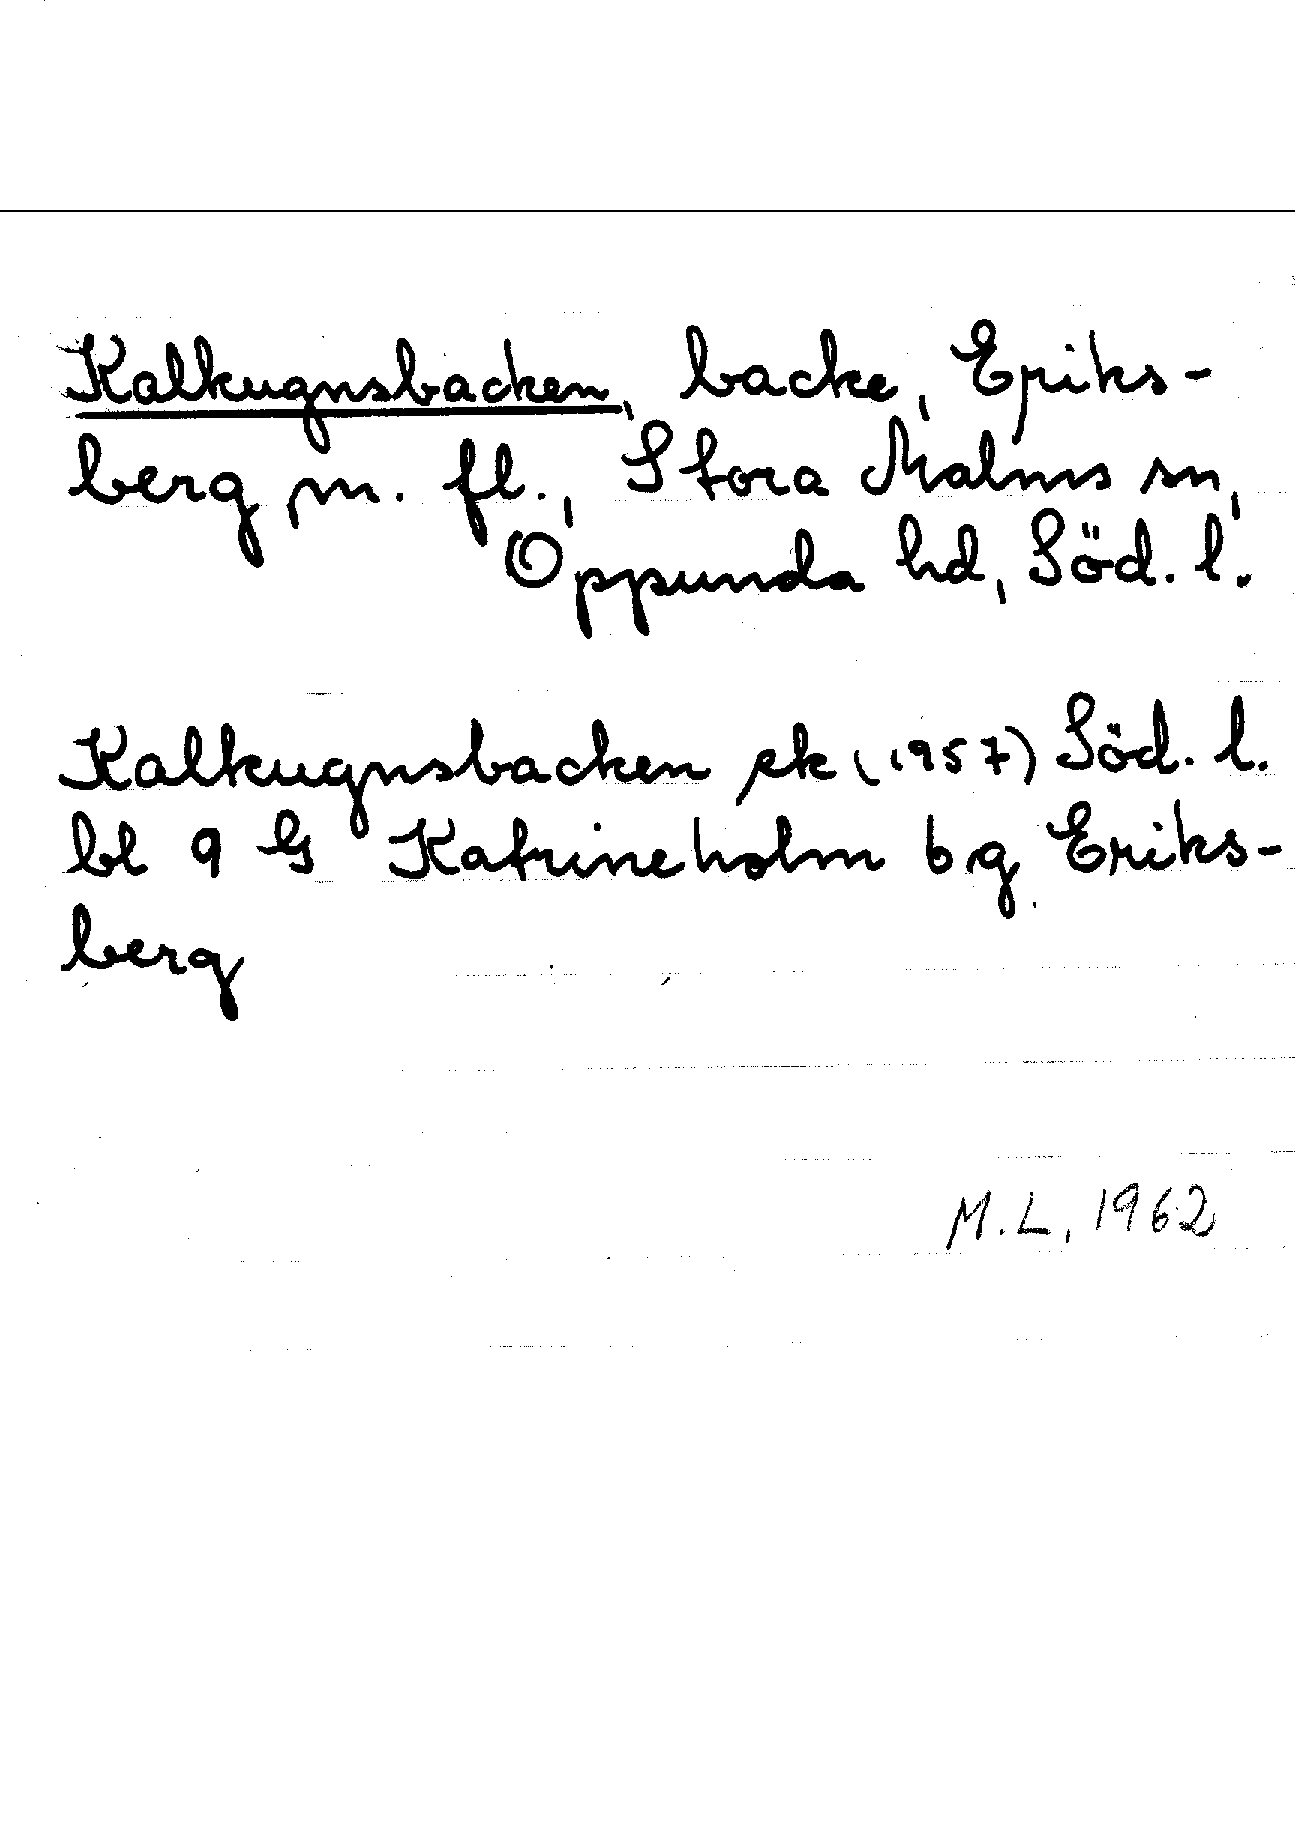 Kalkugnsbacken, backe, Eriks-
berg m. fl., Stora Malms sn,
Oppunda hd, Söd. l.
Kalkugnsbacken ek (1957) Söd. l.
bl 9 G Katrineholm bg Eriks-
berg
M.L, 1962